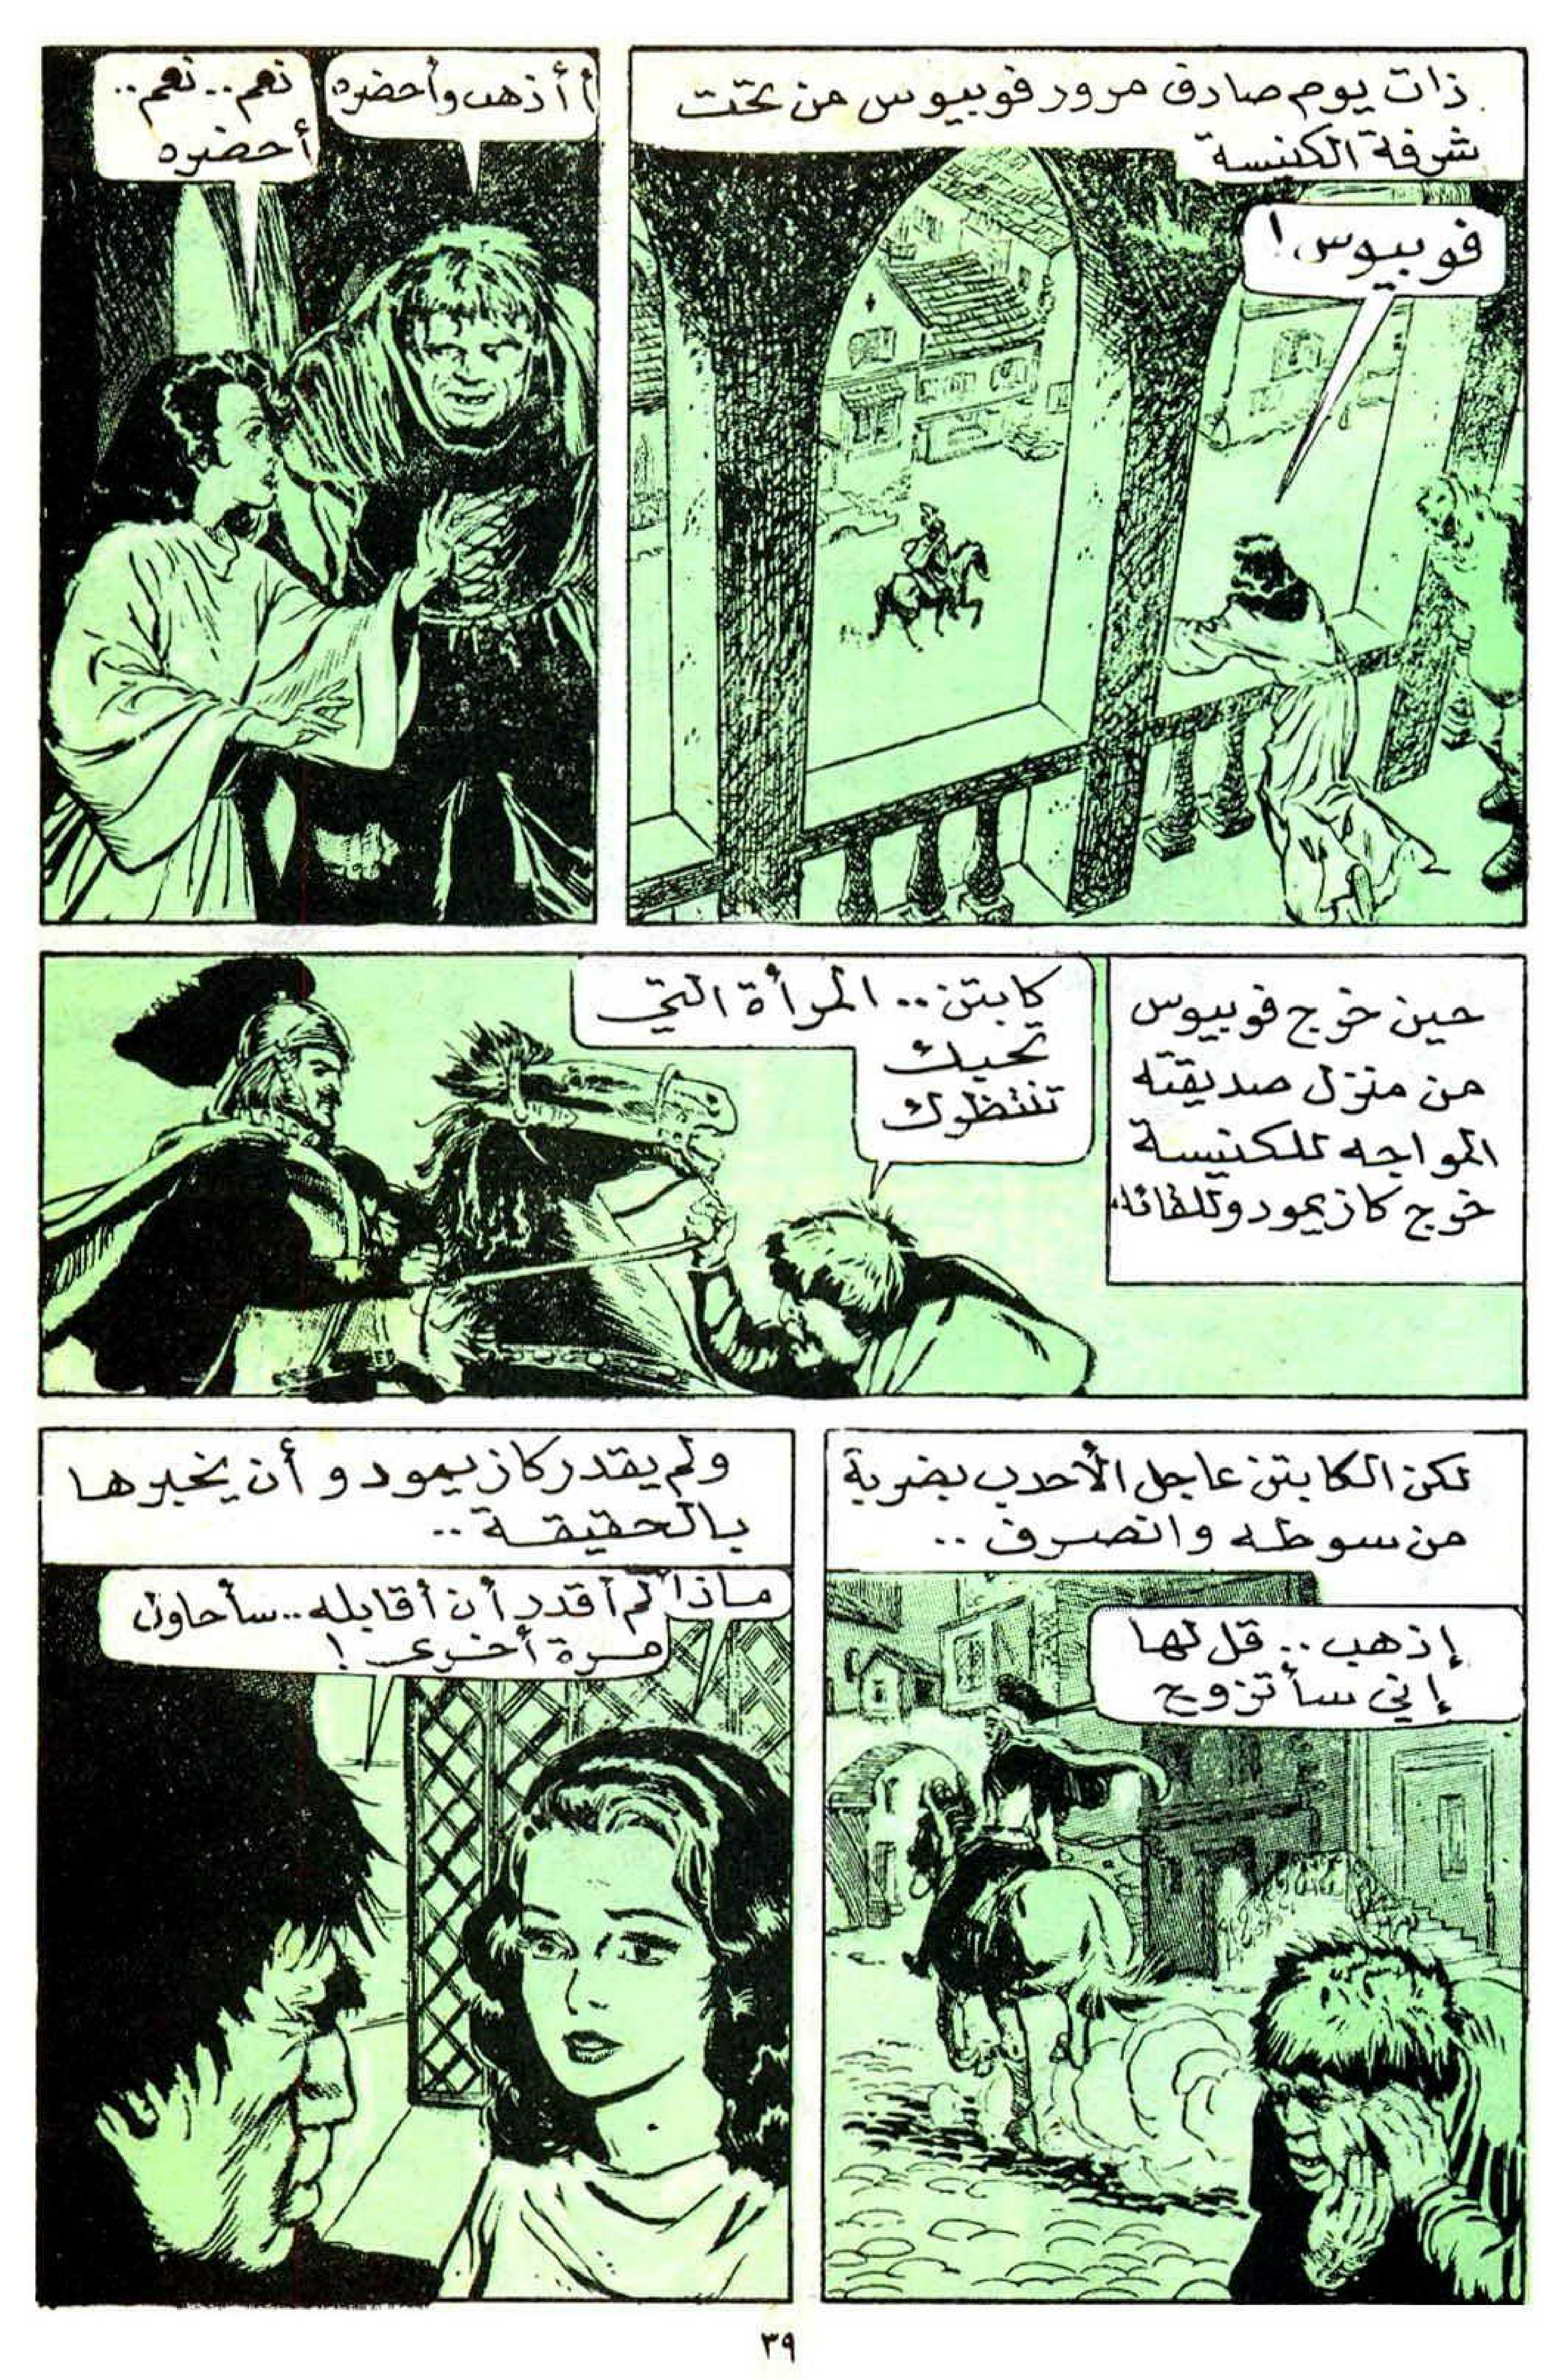 ذات يوم صادف مرور فوبيوس من تحت
شرفة الكنيسة
فوبيوس!
أأذهب وأحضره
نعم.. نعم..
أحضره
حين خرج فوبيوس
من منزل صديقته
المواجه للكنيسة
خرج كازيمودو للقائه
كابتن.. المرأة التي
تحبك
تنتظرك
لكن الكابتن عاجل الأحدب بضربة
من سوطه وانصرف ..
إذهب.. قل لها
إني سأتزوج
ولم يقدر كازيمودو أن يخبرها
بالحقيقة ..
ماذا
لم أقدر أن أقابله.. سأحاول
مرة أخرى !
٣٩